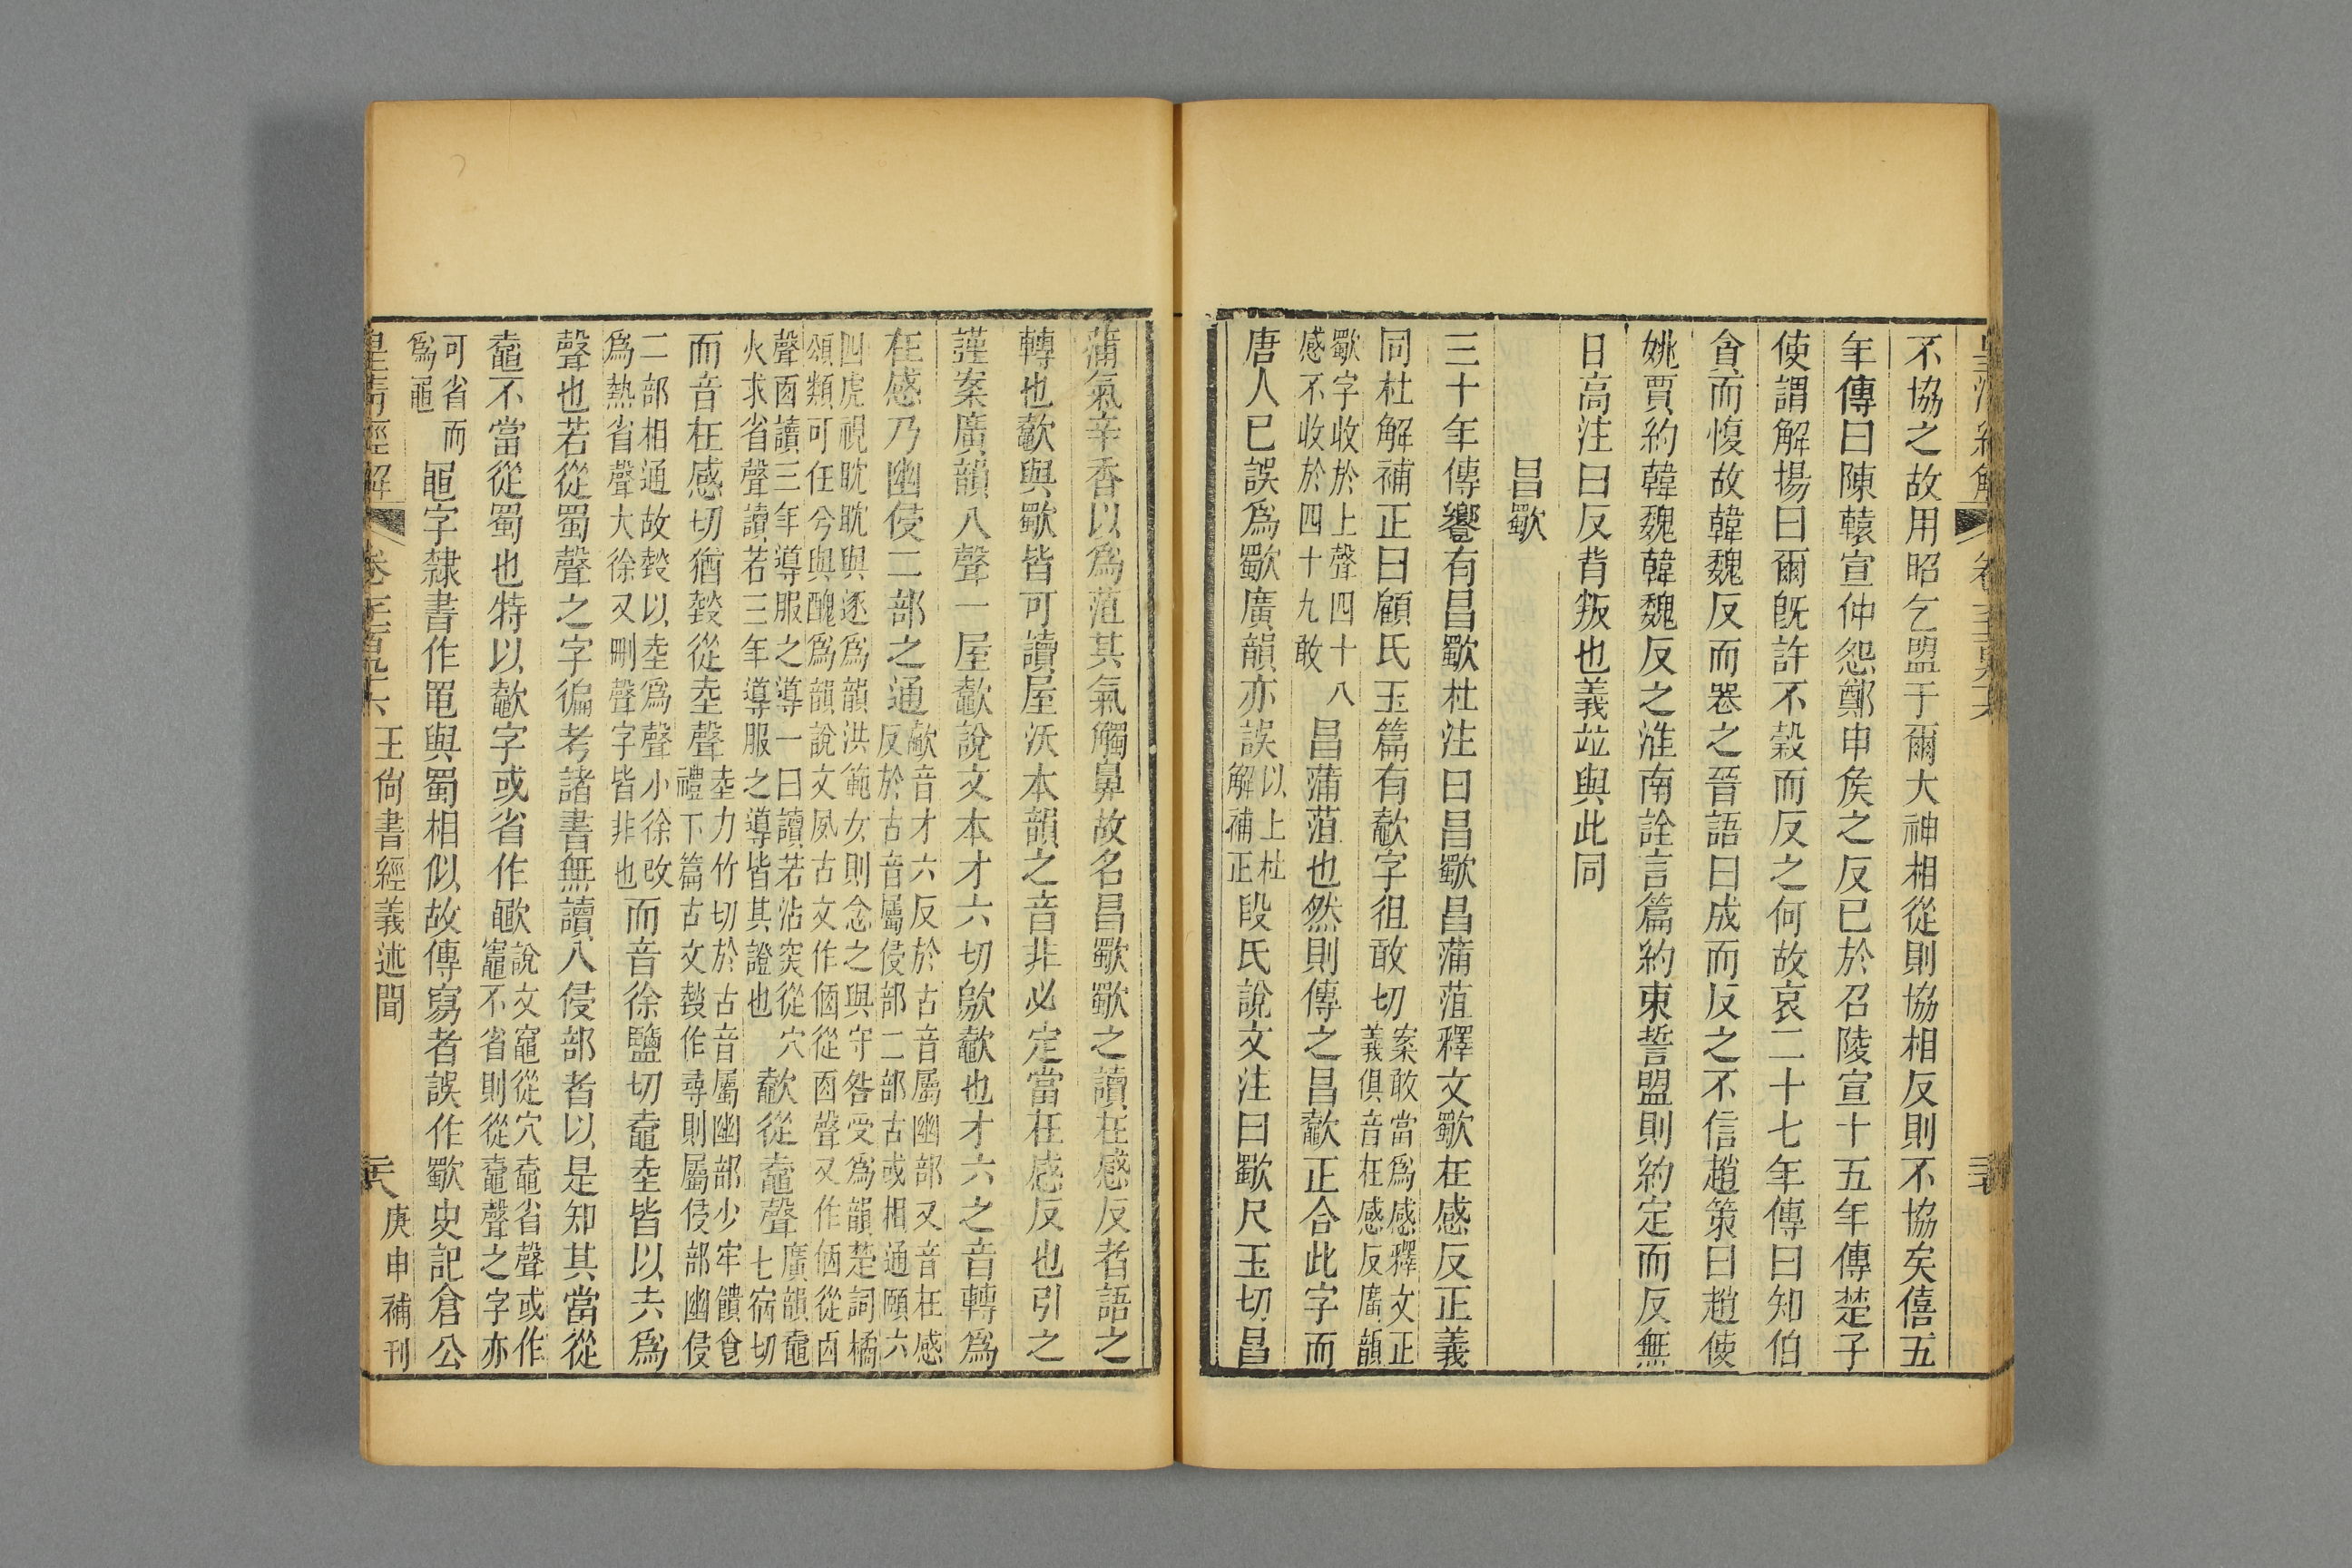 不協之故用昭乞盟于爾大神相從則協相反則不協矣僖五
年傳曰陳轅宣仲怨鄭申矦之反已於召陵宣十五年傳楚子
使謂解揚曰爾旣許不榖而反之何故哀二十七年傳曰知伯
貪而愎故韓魏反而䘮之晉語曰成而反之不信趙策曰趙使
姚賈約韓魏韓魏反之淮南詮言篇約束誓盟則約定而反無
日高注曰反背叛也義竝與此同
昌歜
三十年傳饗有昌歜杜注曰昌歜昌蒲菹釋文歜在感反正義
同杜解補正曰顧氏玉篇有歜字徂敢切
案敢當爲感釋文正
義俱音在感反廣韻
歜字收於上聲四十八
感不收於四十九敢
昌蒲菹也然則傳之昌歜正合此字而
唐人已誤爲歜廣韻亦誤
以上杜
解補正
段氏說文注曰歜尺玉切昌
蒲氣辛香以爲菹其氣觸鼻故名昌歜歜之讀在感反者語之
轉也歜與歜皆可讀屋沃本韻之音非必定當在感反也引之
謹案廣韻入聲一屋歜說文本才六切歍歜也才六之音轉爲
在感乃幽侵二部之通
歜音才六反於古音屬幽部又音在感
反於古音屬侵部二部古或相通頤六
四虎視眈眈與逐爲韻洪範女則念之與守咎受爲韻楚詞橘
頌類可任兮與醜爲韻說文夙古文作㑉從㐁聲又作㑉從㐁
聲㐁讀三年導服之導一曰讀若沾突從穴
火求省聲讀若三年導服之導皆其證也
歜從鼀聲
廣韻鼀
七宿切
而音在感切猶㷠從坴聲
坴力竹切於古音屬幽部少牢饋食
禮下篇古文㷠作尋則屬侵部幽侵
二部相通故㷠以坴爲聲小徐改
爲熱省聲大徐又刪聲字皆非也
而音徐鹽切鼀坴皆以圥爲
聲也若從蜀聲之字徧考諸書無讀入侵部者以是知其當從
鼀不當從蜀也特以歜字或省作歜
說文竈從穴鼀省聲或作
竈不省則從鼀聲之字亦
可省而
爲黽
黽字隸書作黾與蜀相似故傳寫者誤作歜史記倉公
王尚書經義述聞
庚申補刊